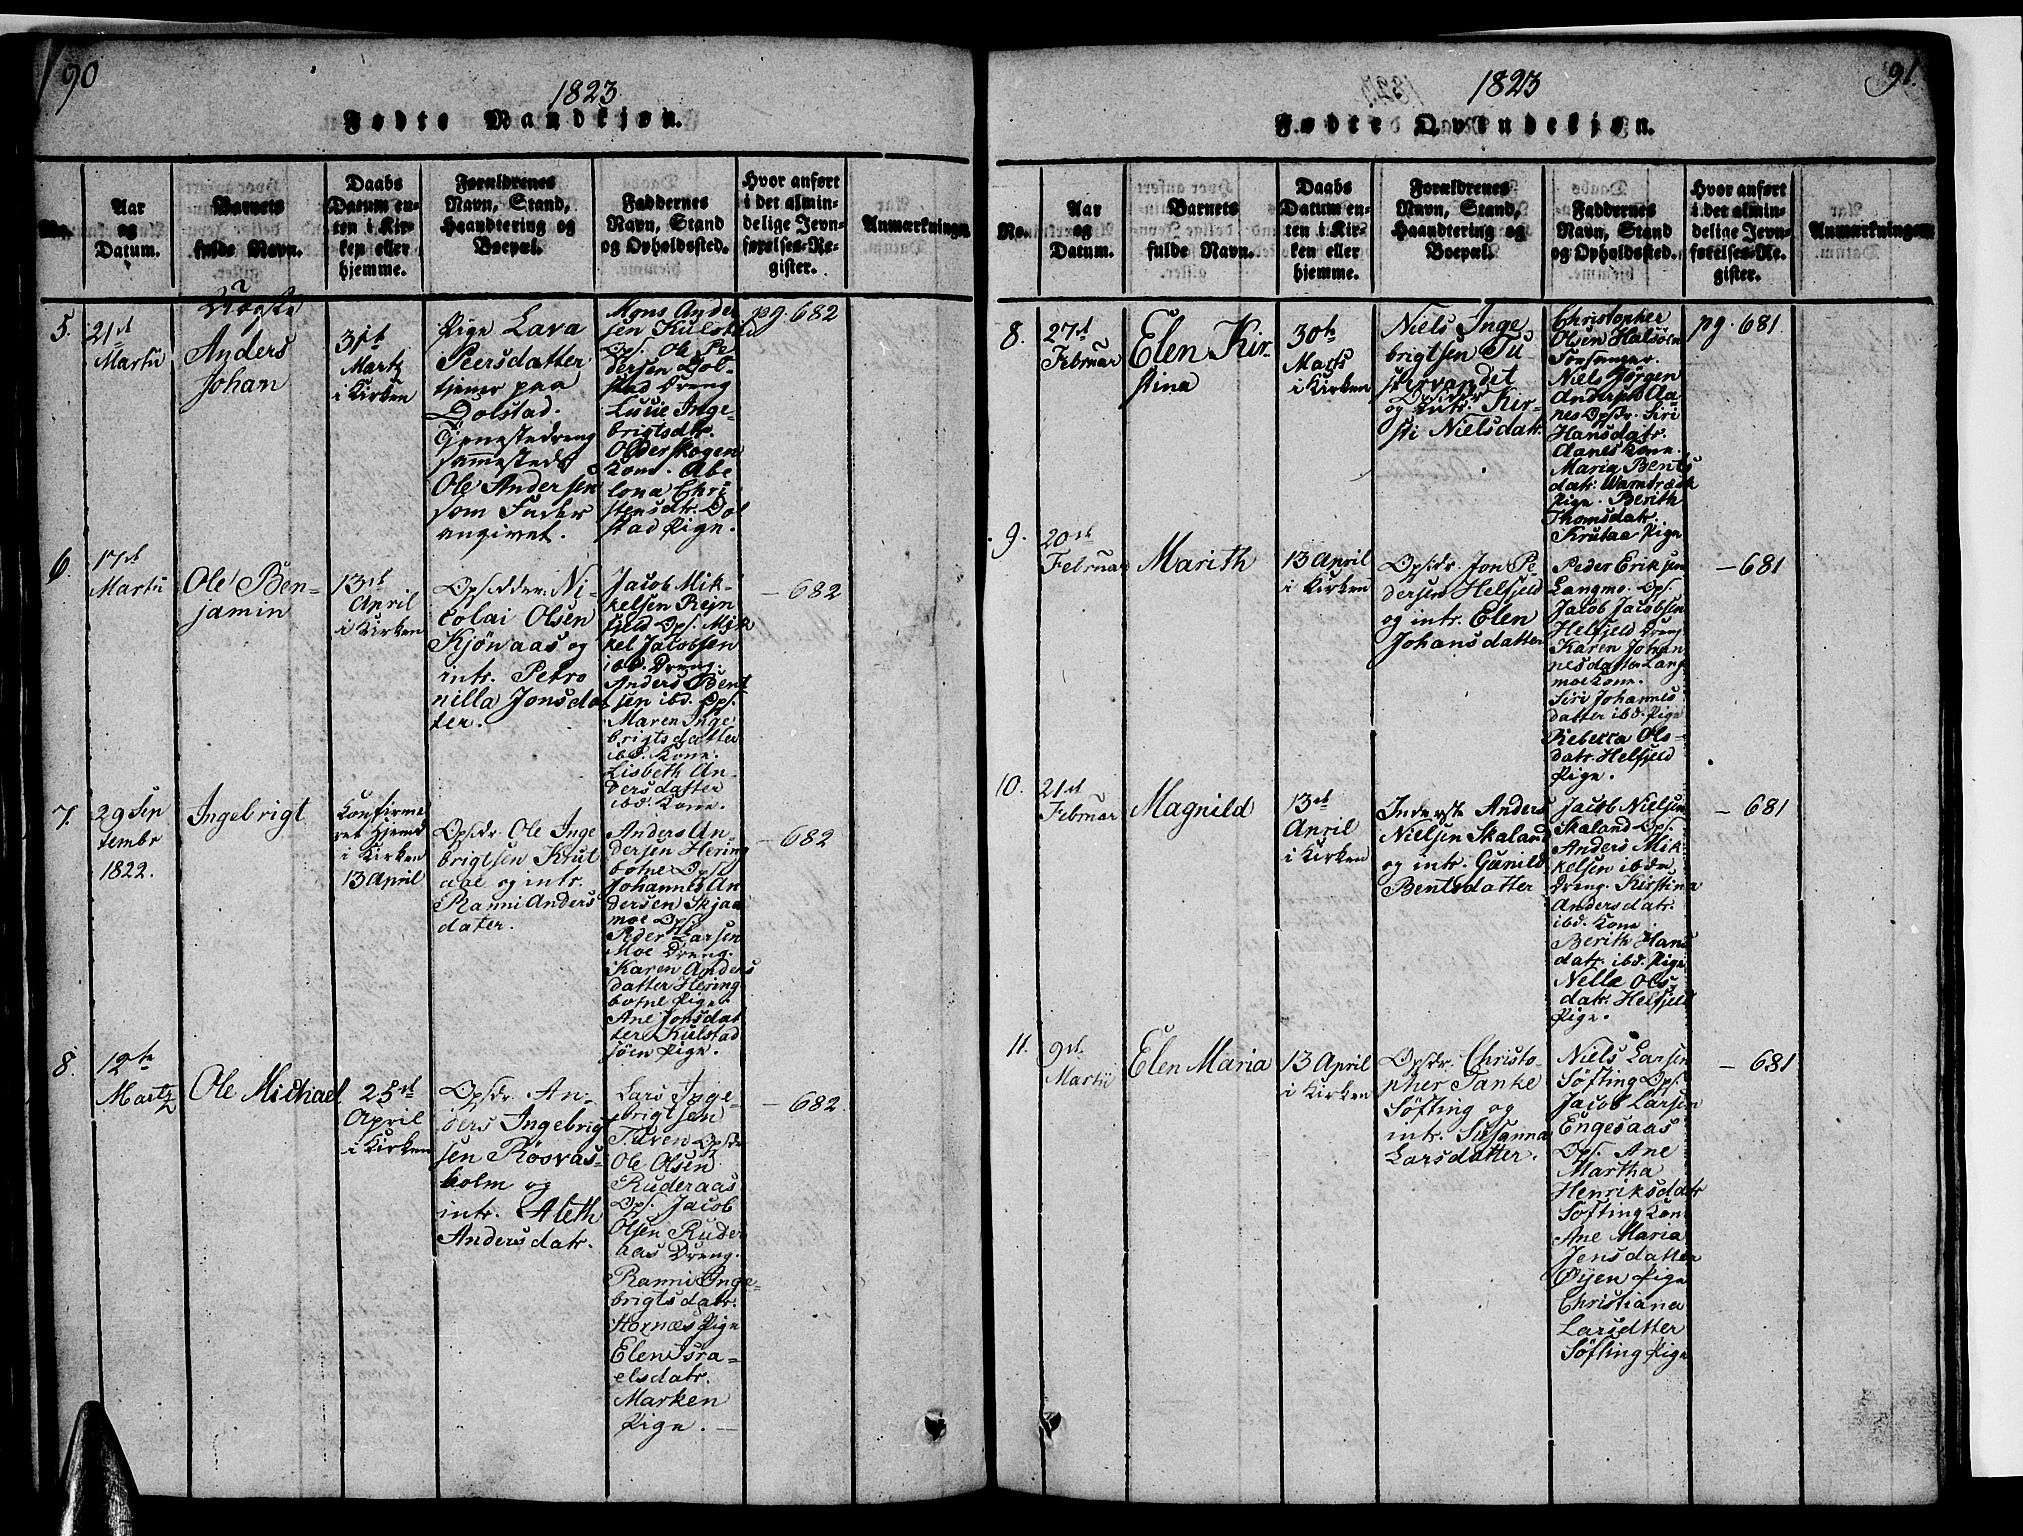 90
1823
Fødte Mandkjøn.
No.
Aar
og
Datum.
Barnets
fulde Navn.
Daabs
Datum en-
ten i Kir-
ken eller
hjemme.
Forældrenes
Navn, Stand,
Haandtering og
Boepæl.
Faddernes
Navn, Stand
og Opholdssted.
Hvor anført
i det almin-
delige Jevn-
førelses-Re-
gister.
Anmærkninger.
5.
21de
Martii
Uægte
Anders
Johan
31te
Marty
i Kirken
Pige Lava
Peersdatter
tjener paa
Dolstad.
Tjenestedreng
sammesteds
Ole Andersen
som Fader
angivet.
Mons Ander
sen Kulstad
Ops. Ole Pe
dersen Dol-
stad Dreng
Lusie Inge-
brigtsdtr.
Olderskogen
Kone. Abe
lona Chri
stensdtr. Dol
stad Pige.
pg. 682
6.
17de
Martii
Ole Ben-
jamin
13de
April
i Kirken
Opsidder Ni-
colai Olsen
Kjønaas og
intr. Petro
nilla Jonsda
ter.
Jacob Mik-
kelsen Rejn
fjeld Ops. Mik
kel Jacobsen
ibd. Dreng.
Anders Bent
sen ibd. Ops.
Maren Inge
brigtsdatter
ibd. Kone.
Lisbeth An-
dersdatter
ibd. Kone.
- 682
7.
29 Sep
tembr
1822.
Ingebrigt
Konfirme
ret Hjemd
i Kirken
13 April
Opsdr. Ole Inge
brigtsen Krut
aae og intr.
Ranni Anders
dater.
Anders An
dersen Hering
botne Ops.
Johannes An
dersen Skjaa
moe Ops.
Peder Larsen
Moe Dreng.
Karen Anders
datter Hering
botne Pige.
Ane Jonsdat
ter Kulstad
sjøen Pige.
- 682
8.
12te
Martz
Ole Michael
25de
April
i Kirken
Opsdr. An-
ders Ingebrigt
sen Røsvas-
holm og
intr. Aleth
Andersdatr.
Lars Inge-
brigtsen
Tuven Opsdr
Ole Olsen
Ruderaas
Ops. Jacob
Olsen Ruder
aas Dreng.
Ranni Inge-
brigtsdatr.
Hornæs Pige
Elen Isra-
elsdatr.
Marken
Pige. -
- 682
91
1823
Fødte Qvindekjøn.
No.
Aar
og
Datum.
Barnets
fulde Navn.
Daabs
Datum en-
ten i Kir-
ken eller
hjemme.
Forældrenes
Navn, Stand,
Haandtering og
Boepæl.
Faddernes
Navn, Stand
og Opholdssted.
Hvor anført
i det almin-
delige Jevn-
førelses-Re-
gister.
Anmærkninger.
8.
27de
Februar
Elen Kir-
stina
30te
Marts
i Kirken
Niels Inge
brigtsen Tu
stervandet
Opsiddr
og intr. Kir-
sti Nielsdatr.
Christopher
Olsen Halsøen
Forsanger.
Niels Jørgen
Anderss Aa-
nes Opsdr. Siri
Hansdatr.
Aanes Kone.
Maria Bents
datr. Warnbræk
Pige. Berith
Thomsdatr.
Krutaa Pige
pg. 681
9.
20de
Februar
Marith
13 April
i Kirken
Opsidr. Jon Pe
dersen Helfjeld
og intr. Elen
Johansdatter
Peder Eriksen
Langmo. Ops.
Jacob Jacobsen
Helfjeld Dreng
Karen Johan
nesdatter Lang
moe Kone.
Siri Johannes
datter ibd. Pige
Rebecca Ols-
datr. Helfjeld
Pige.
- 681
10.
21de
Februar
Magnild
13de
April
i Kirken
Inderste Anders
Nielsen Skaland
og intr. Gunild
Bentsdatter
Jacob Nielsen
Skaland Ops.
Anders Mik-
kelsen ibdm
Dreng. Kirstina
Andersdatr.
ibd. Kone
Berith Hans
datr. ibd. Pige
Nella Ols-
datr. Helfjeld
Pige.
- 681
11.
9de
Martii
Elen Maria
13 April
i Kirken
Opsdr. Christo-
pher Tanke
Søfting og
intr. Susanna
Larsdatter.
Niels Larsen
Søfting Ops.
Jacob Larsen
Engesaas
Ops. Ane
Martha
Henriksdatr
Søfting Kone
Ane Maria
Jensdatter
Øyen Pige
Christiana
Larsdtter
Søfting Pige
- 681